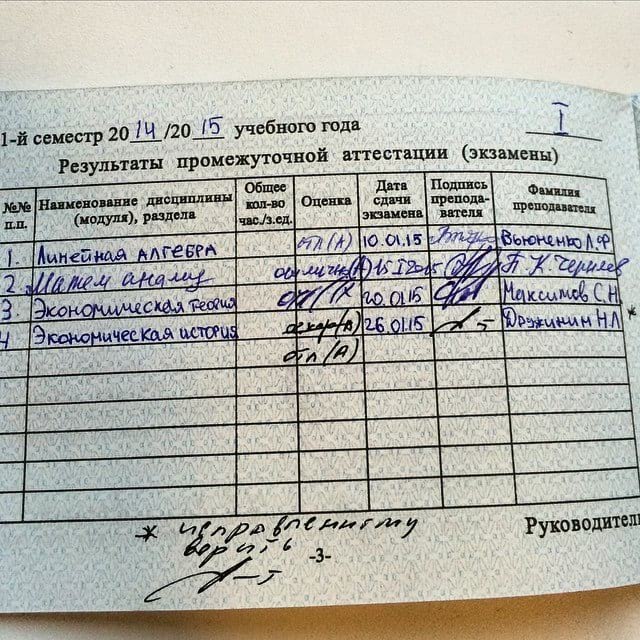 I
1-й семестр 2014/2015 учебного года
Результаты промежуточной аттестации (экзамены)
№№ п.п. Наименование дисциплины (модуля), раздела Общее кол-во час./з.ед. Оценка Дата сдачи экзамена Подпись препода-вателя Фамилия преподавателя
1. Линейная АЛГЕБРА отл(А) 10.01.15 Вьюненко Л.Ф
2 Матем анализ отлично(А) 15 I 2015 П. К Черняев
3. Экономическая теория отл (А 20.01.15 Максимов С.Н.
4 Экономическая история (А) 26.01.15 Дружинин Н Л *
отл (А)
* исправленному
верить
-3-
Руководитель